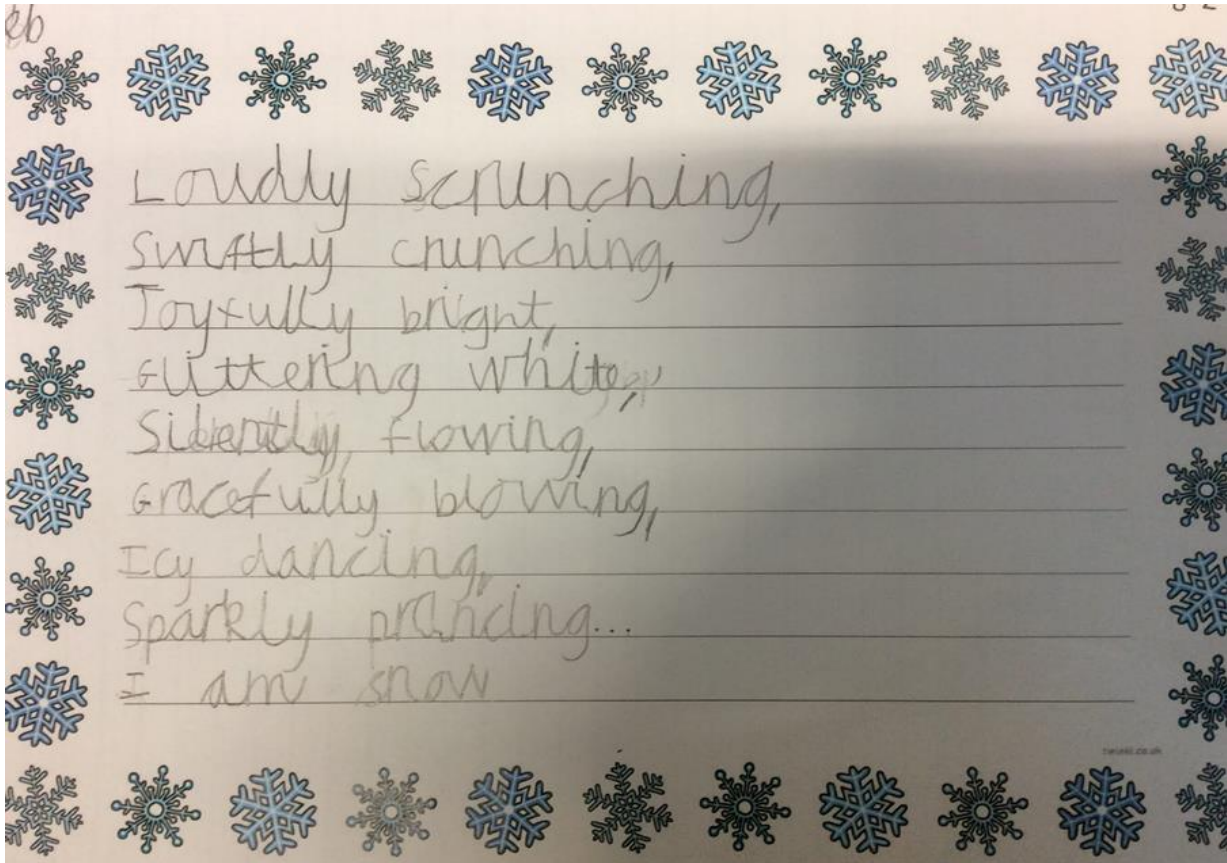 eb
Loudly scrunching,
Swiftly crunching,
Joyfully bright,
Glittering white,
Silently, flowing,
Gracefully blowing,
Icy dancing,
Sparkly prancing...
I am snow
twinkl.co.uk